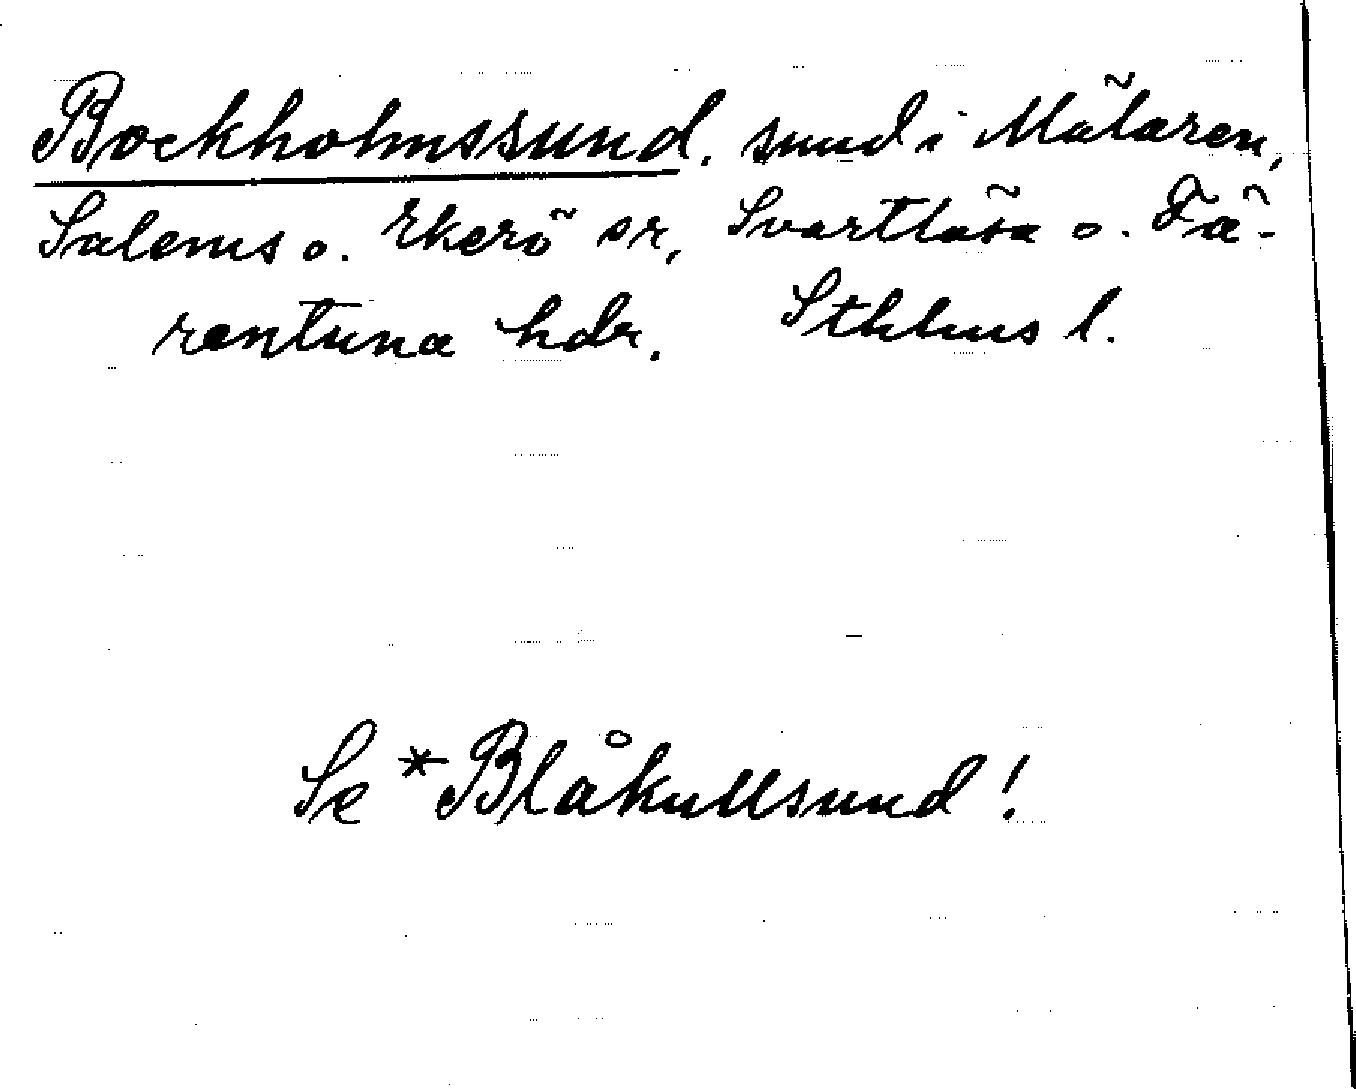 Bockholmssund. sund i Mälaren,
Salems o. Ekerö sr, Svartlösa o. Fä-
rentuna hdr. Sthlms l.
Se *Blåkullsund!